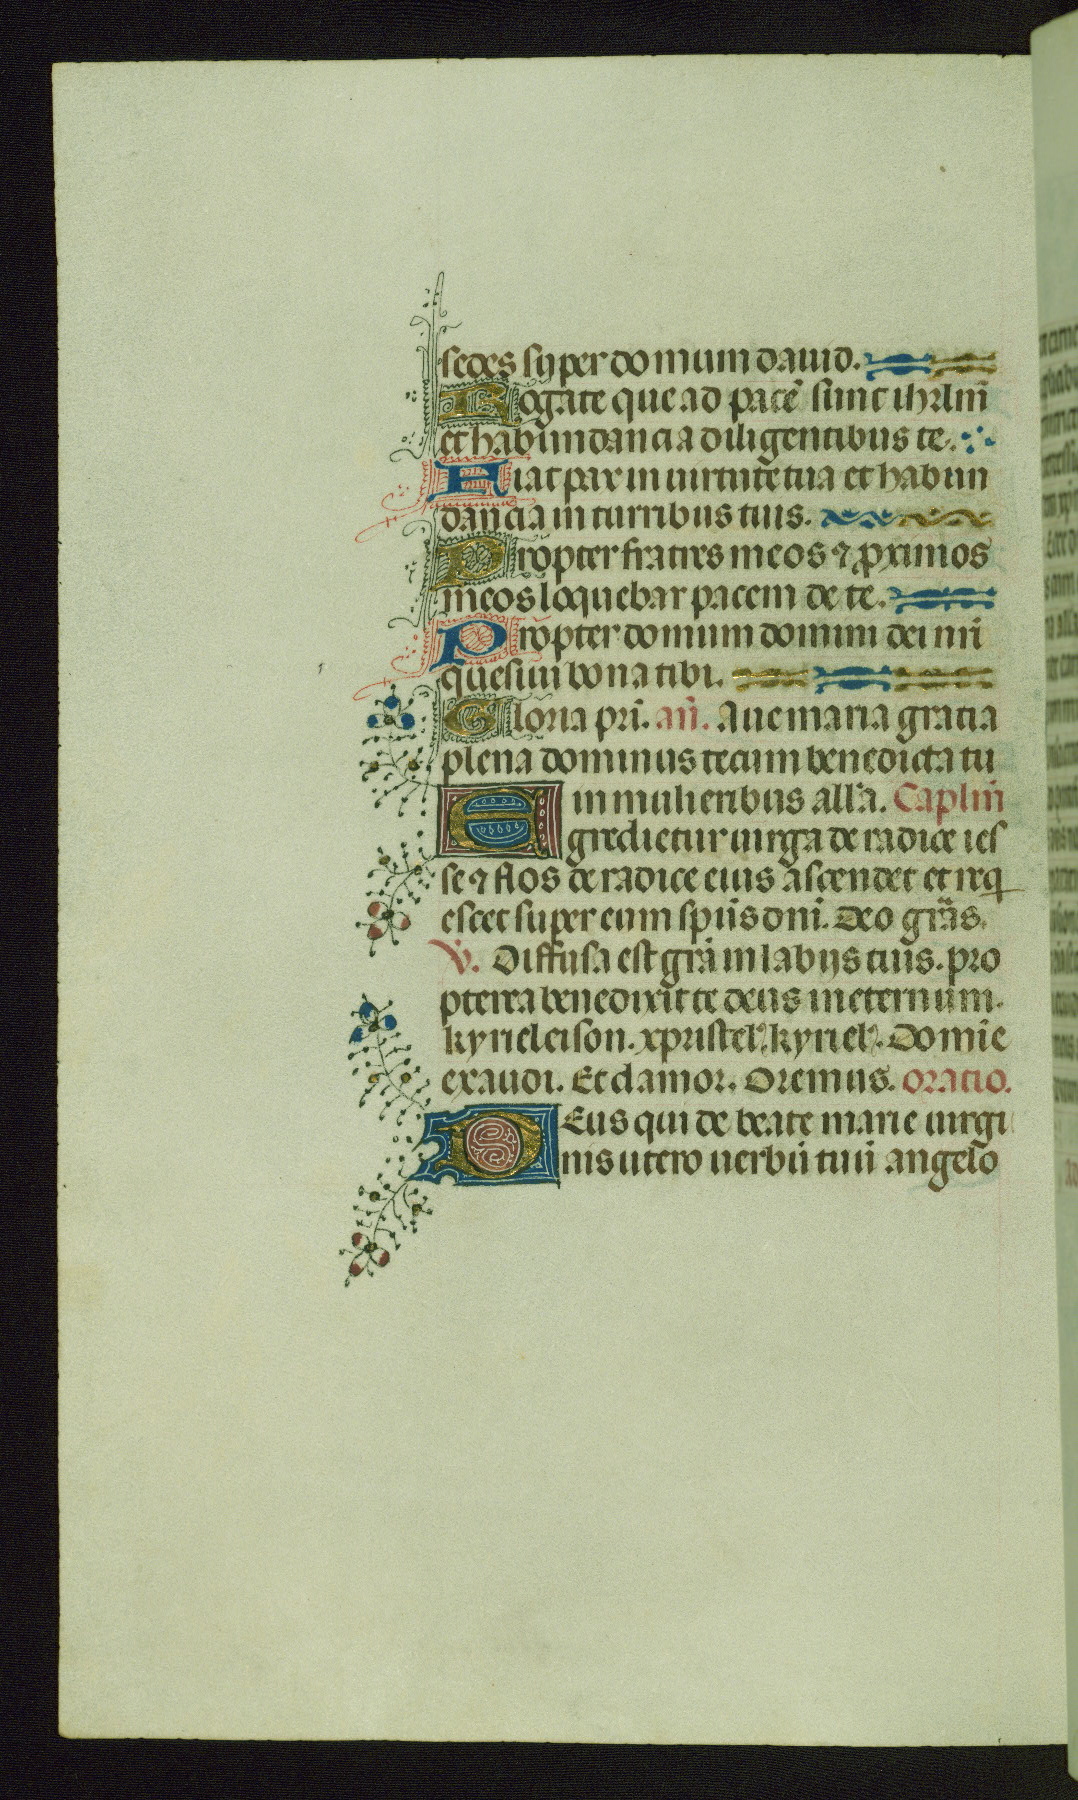 sedes super domum dauid.
Rogate que ad pacē sunt ihrlm̄
et habundancia diligentibus te.
Fiat pax in uirtute tua et habun
dancia in turribus tuis.
Propter fratres meos ⁊ ꝓximos
meos loquebar pacem de te.
Propter domum domini dei mī
quesiui bona tibi.
Gloria pr̄i. an̄. Aue maria gracia
plena dominus tecum benedicta tu
in mulieribus all'a. Caplm̄
Egredietur uirga de radice ies
se ⁊ flos de radice eius ascendet et req̄
escet super eum spūs dn̄i. Deo grās.
V̄. Diffusa est grā in labijs tuis. pro
pterea benedixit te deus in eternum.
kyrieleison. xpristel'. kyriel'. Domīe
exaudi. Et clamor. Oremus. oratio.
DEus qui de beate marie uirgi
nis utero uerbū tuū angelo